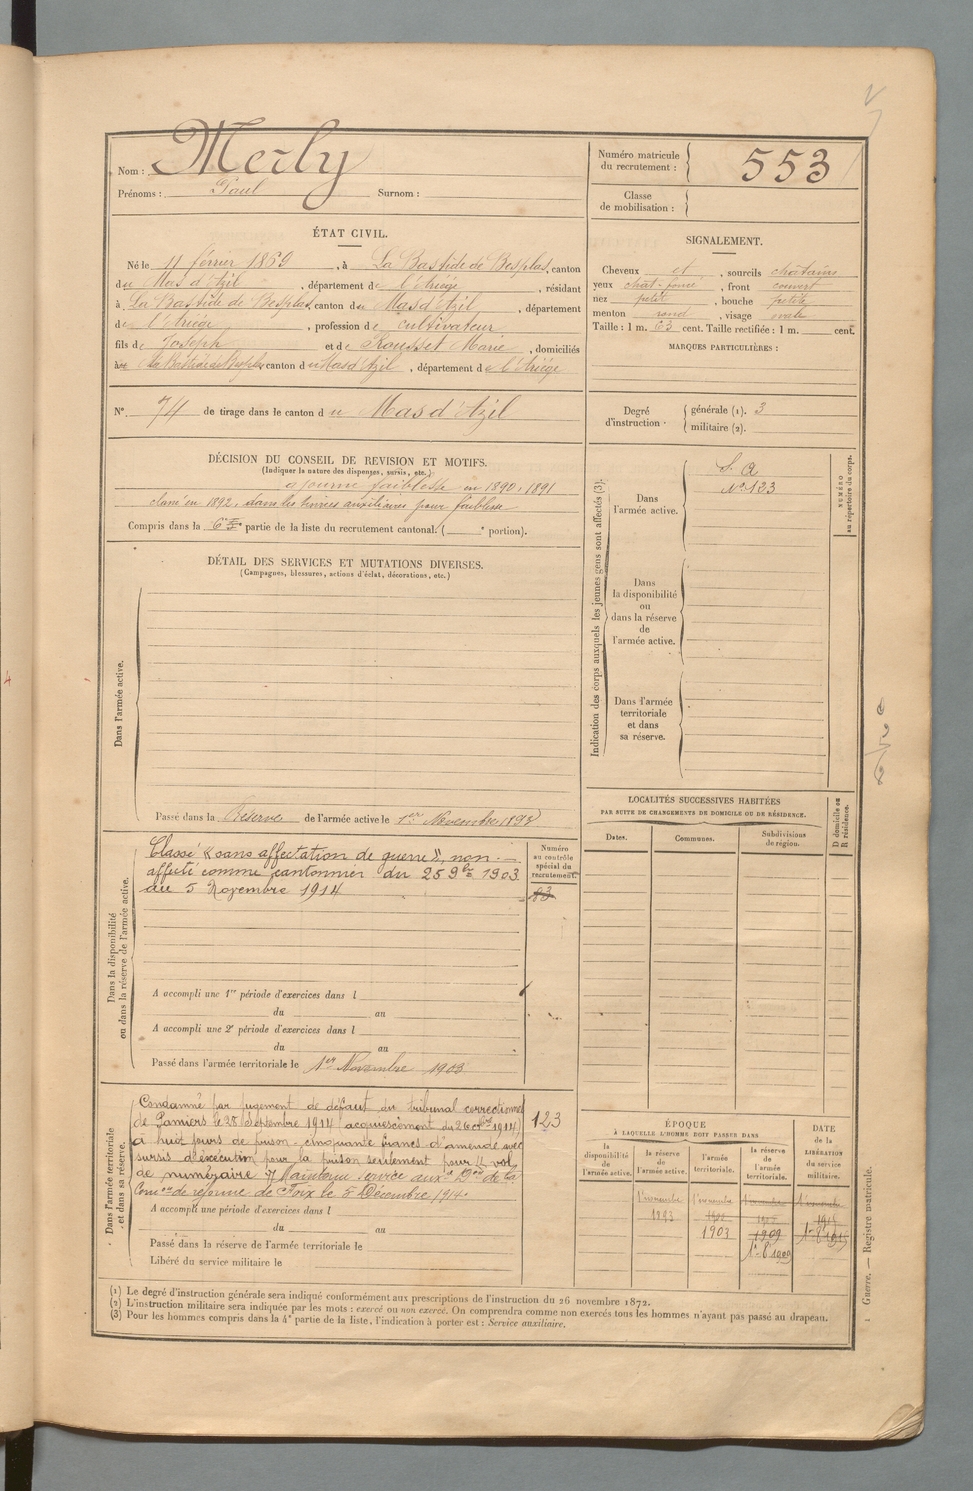 Nom : Merly
Prénoms : Paul Surnom :
Numéro matricule du recrutement : 553
Classe de mobilisation :
ÉTAT CIVIL.
Né le 11 février 1869, à La Bastide de Besplas, canton
du Mas d'Azil, département de l'Ariège, résidant
à La Bastide de Besplas, canton du Mas d'Azil, département
de l'Ariège, profession de cultivateur
fils de Joseph et de Rousset Marie, domiciliés
à La Bastide de Besplas, canton du Mas d'Azil, département de l'Ariège
N° 74 de tirage dans le canton du Mas d'Azil
SIGNALEMENT.
Cheveux et, sourcils châtains
yeux chat. foncé, front couvert
nez petit, bouche petite
menton rond, visage ovale
Taille : 1 m. 63 cent. Taille rectifiée : 1 m. cent.
MARQUES PARTICULIÈRES :
Degré d'instruction
générale (1). 3
militaire (2).
DÉCISION DU CONSEIL DE REVISION ET MOTIFS.
(Indiquer la nature des dispenses, sursis, etc.)
ajourné faiblesse en 1890, 1891
classé en 1892, dans les services auxiliaires pour faiblesse
Compris dans la 6e partie de la liste du recrutement cantonal. ( e portion).
DÉTAIL DES SERVICES ET MUTATIONS DIVERSES.
(Campagnes, blessures, actions d'éclat, décorations, etc.)
Dans l'armée active.
Passé dans la Réserve de l'armée active le 1er Novembre 1893
Indication des corps auxquels les jeunes gens sont affectés (3).
NUMÉRO au répertoire du corps.
Dans l'armée active.
S. A
N° 123
Dans la disponibilité ou dans la réserve de l'armée active.
Dans l'armée territoriale et dans sa réserve.
LOCALITÉS SUCCESSIVES HABITÉES
PAR SUITE DE CHANGEMENTS DE DOMICILE OU DE RÉSIDENCE.
Dates. Communes. Subdivisions de région.
D domicile ou R résidence.
Dans la disponibilité ou dans la réserve de l'armée active.
Classé « sans affectation de guerre », non-
affecté comme cantonnier du 25 9bre 1903
au 5 Novembre 1914
Numéro au contrôle spécial du recrutement.
83
A accompli une 1re période d'exercices dans l
du au
A accompli une 2e période d'exercices dans l
du au
Passé dans l'armée territoriale le 1er Novembre 1903
Dans l'armée territoriale et dans sa réserve.
Condamné par jugement de défaut du tribunal correctionnel
de Pamiers le 28 Septembre 1914 (acquiescement du 26 1914)
à huit jours de prison - cinquante francs d'amende avec
sursis d'exécution pour la prison seulement pour vol
de numéraire. Maintenu service aux. de la
Comon de réforme de Foix le 5 Décembre 1914.
123
A accompli une période d'exercices dans l
du au
Passé dans la réserve de l'armée territoriale le
Libéré du service militaire le
ÉPOQUE
À LAQUELLE L'HOMME DOIT PASSER DANS
la disponibilité de l'armée active.
la réserve de l'armée active.
l'armée territoriale.
la réserve de l'armée territoriale.
DATE de la LIBÉRATION du service militaire.
1er novembre 1er novembre 1er novembre 1er novembre
1893
1903 1909
(1) Le degré d'instruction générale sera indiqué conformément aux prescriptions de l'instruction du 26 novembre 1872.
(2) L'instruction militaire sera indiquée par les mots : exercé ou non exercé. On comprendra comme non exercés tous les hommes n'ayant pas passé au drapeau.
(3) Pour les hommes compris dans la 4e partie de la liste, l'indication à porter est : Service auxiliaire.
Guerre. — Registre matricule.